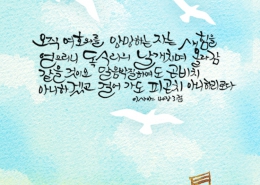 오직 여호와를 앙망하는 자는 새 힘을
얻으리니 독수리의 날개치며 올라감
같을 것이요 달음박질하여도 곤비치
아니하겠고 걸어 가도 피곤치 아니하리로다
이사야 40장 31절